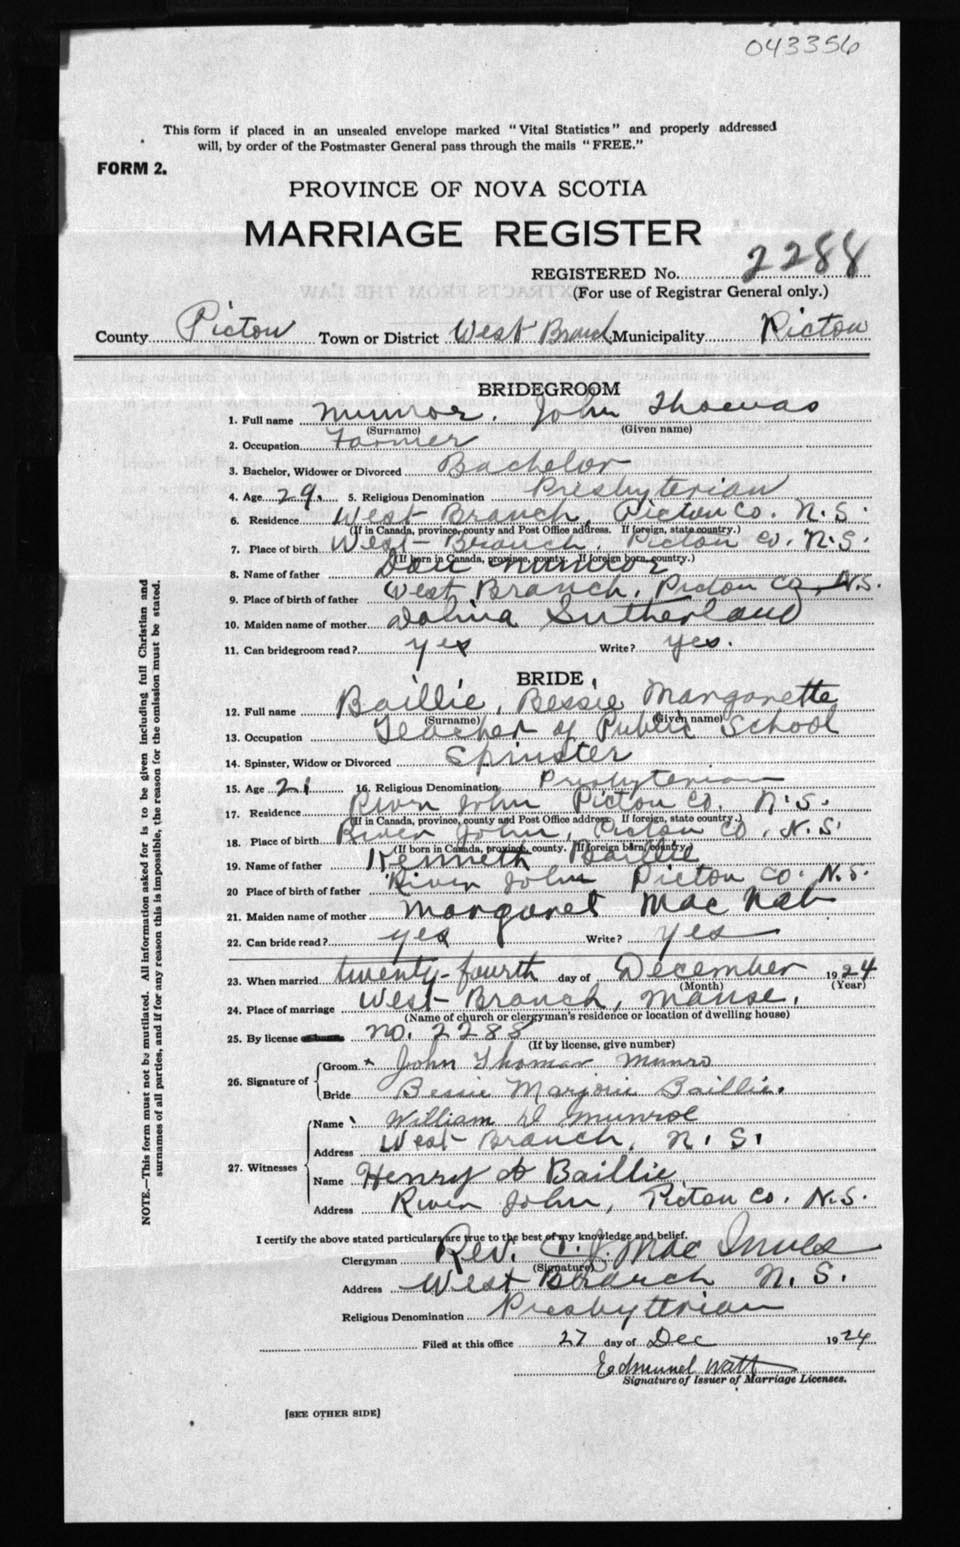 043356
This form if placed in an unsealed envelope marked "Vital Statistics" and properly addressed
will, by order of the Postmaster General pass through the mails "FREE."
FORM 2.
PROVINCE OF NOVA SCOTIA
MARRIAGE REGISTER
REGISTERED No. 2288
(For use of Registrar General only.)
County Pictou Town or District West Branch Municipality Pictou
BRIDEGROOM
1. Full name Munroe, John Thomas
(Surname) (Given name)
2. Occupation Farmer
3. Bachelor, Widower or Divorced Bachelor
4. Age 29 5. Religious Denomination Presbyterian
6. Residence West Branch, Pictou Co. N.S.
(If in Canada, province, county and Post Office address. If foreign, state country.)
7. Place of birth West Branch, Pictou Co. N.S.
(If born in Canada, province, county. If foreign born, country.)
8. Name of father Munroe
9. Place of birth of father West Branch, Pictou Co, N.S.
10. Maiden name of mother Sutherland
11. Can bridegroom read? yes Write? yes.
BRIDE
12. Full name Baillie, Bessie Margarette
(Surname) (Given name)
13. Occupation Teacher of Public School
14. Spinster, Widow or Divorced Spinster
15. Age 21 16. Religious Denomination Presbyterian
17. Residence River John Pictou Co. N.S.
(If in Canada, province, county and Post Office address. If foreign, state country.)
18. Place of birth River John, Pictou Co, N.S.
(If born in Canada, province, county. If foreign born, country.)
19. Name of father Kenneth Baillie
20 Place of birth of father River John Pictou Co. N.S.
21. Maiden name of mother Margaret Mac Nab
22. Can bride read? yes Write? yes
23. When married twenty-fourth day of December 1924
(Month) (Year)
24. Place of marriage West Branch, Manse.
(Name of church or clergyman's residence or location of dwelling house)
25. By license No. 2288
(If by license, give number)
26. Signature of
Groom John Thomas Munro
Bride Bessie Marjorie Baillie.
27. Witnesses
Name William D Munroe
Address West Branch, N.S.
Name Henry Baillie
Address River John, Pictou Co. N.S.
I certify the above stated particulars are true to the best of my knowledge and belief.
Clergyman Rev. Mac Innes
(Signature)
Address West Branch N.S.
Religious Denomination Presbyterian
Filed at this office 27 day of Dec 1924
Edmund Watt
Signature of Issuer of Marriage Licenses.
[SEE OTHER SIDE]
NOTE.—This form must not be mutilated. All information asked for is to be given including full Christian and
surnames of all parties, and if for any reason this is impossible, the reason for the omission must be stated.